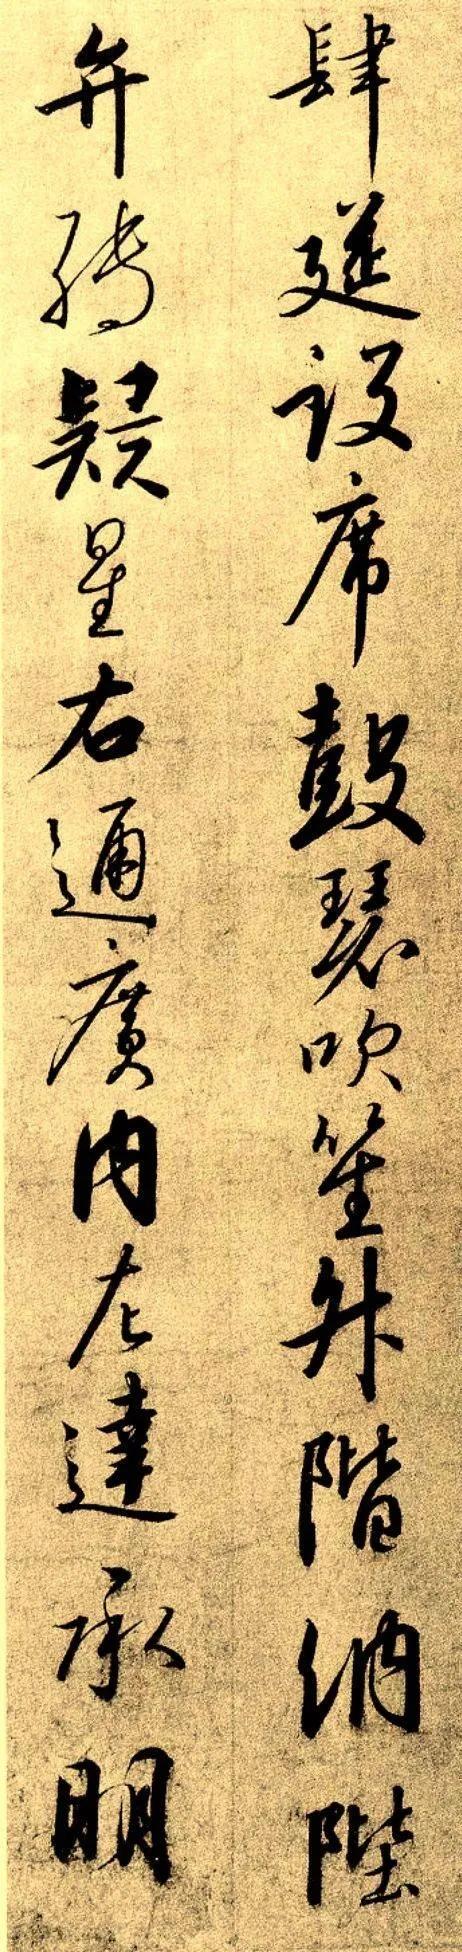 肆筵設席鼓瑟吹笙升階納陛
弁轉疑星右通廣內左達承明